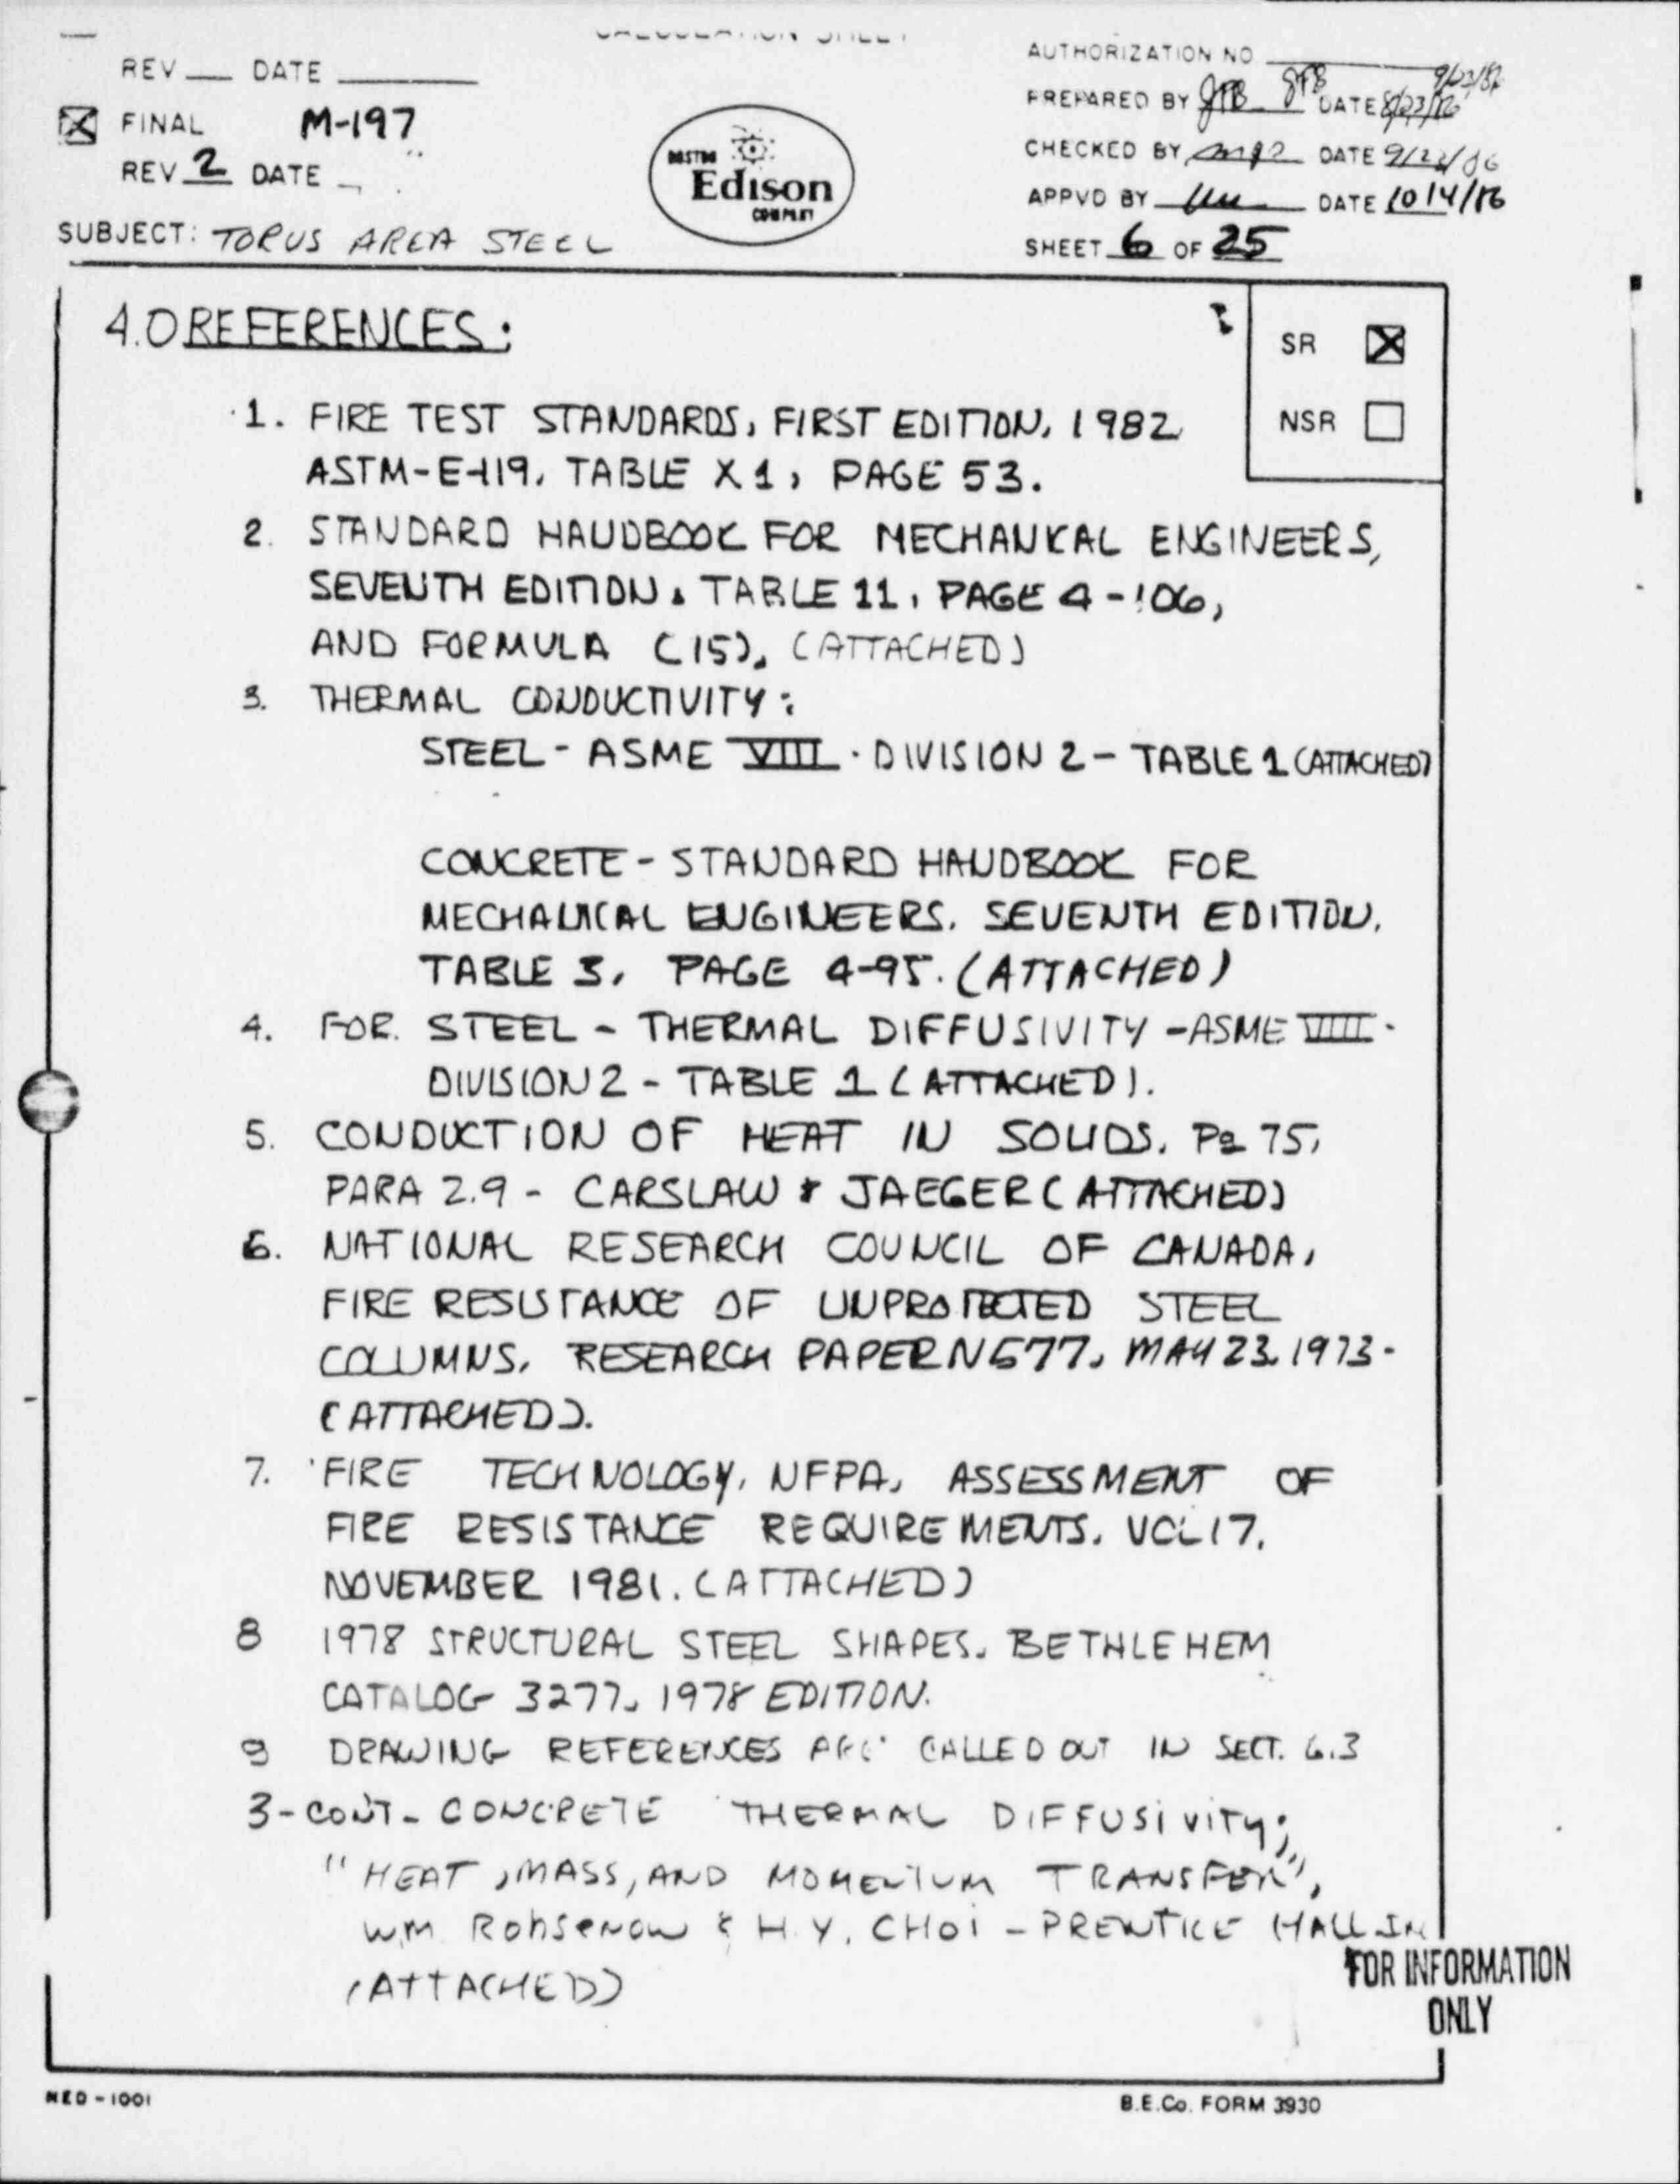 CALCULATION SHEET
REV DATE
FINAL M-197
REV 2 DATE
SUBJECT: TORUS AREA STEEL
BOSTON
Edison
COMPANY
AUTHORIZATION NO
PREPARED BY JTB JTB DATE 9/23/86
CHECKED BY DATE 9/23/86
APPVD BY DATE 10/4/86
SHEET 6 OF 25
SR
NSR
4.0 REFERENCES:
1. FIRE TEST STANDARDS, FIRST EDITION, 1982
ASTM-E-119, TABLE X1, PAGE 53.
2. STANDARD HANDBOOK FOR MECHANICAL ENGINEERS,
SEVENTH EDITION, TABLE 11, PAGE 4-106,
AND FORMULA (15), (ATTACHED)
3. THERMAL CONDUCTIVITY:
STEEL - ASME VIII - DIVISION 2 - TABLE 1 (ATTACHED)
CONCRETE - STANDARD HANDBOOK FOR
MECHANICAL ENGINEERS. SEVENTH EDITION.
TABLE 3, PAGE 4-95. (ATTACHED)
4. FOR. STEEL - THERMAL DIFFUSIVITY - ASME VIII -
DIVISION 2 - TABLE 1 (ATTACHED).
5. CONDUCTION OF HEAT IN SOLIDS. Pg 75,
PARA 2.9 - CARSLAW & JAEGER (ATTACHED)
6. NATIONAL RESEARCH COUNCIL OF CANADA,
FIRE RESISTANCE OF UNPROTECTED STEEL
COLUMNS, RESEARCH PAPER N577, MAY 23, 1973 -
(ATTACHED).
7. FIRE TECHNOLOGY, NFPA, ASSESSMENT OF
FIRE RESISTANCE REQUIREMENTS. VOL 17,
NOVEMBER 1981. (ATTACHED)
8 1978 STRUCTURAL STEEL SHAPES. BETHLEHEM
CATALOG 3277, 1978 EDITION.
9 DRAWING REFERENCES ARE CALLED OUT IN SECT. 6.3
3-CONT- CONCRETE THERMAL DIFFUSIVITY;
"HEAT, MASS, AND MOMENTUM TRANSFER",
WM Rohsenow & H.Y. CHOI - PRENTICE HALL IN
(ATTACHED)
FOR INFORMATION
ONLY
NED-1001
B.E.Co. FORM 3930